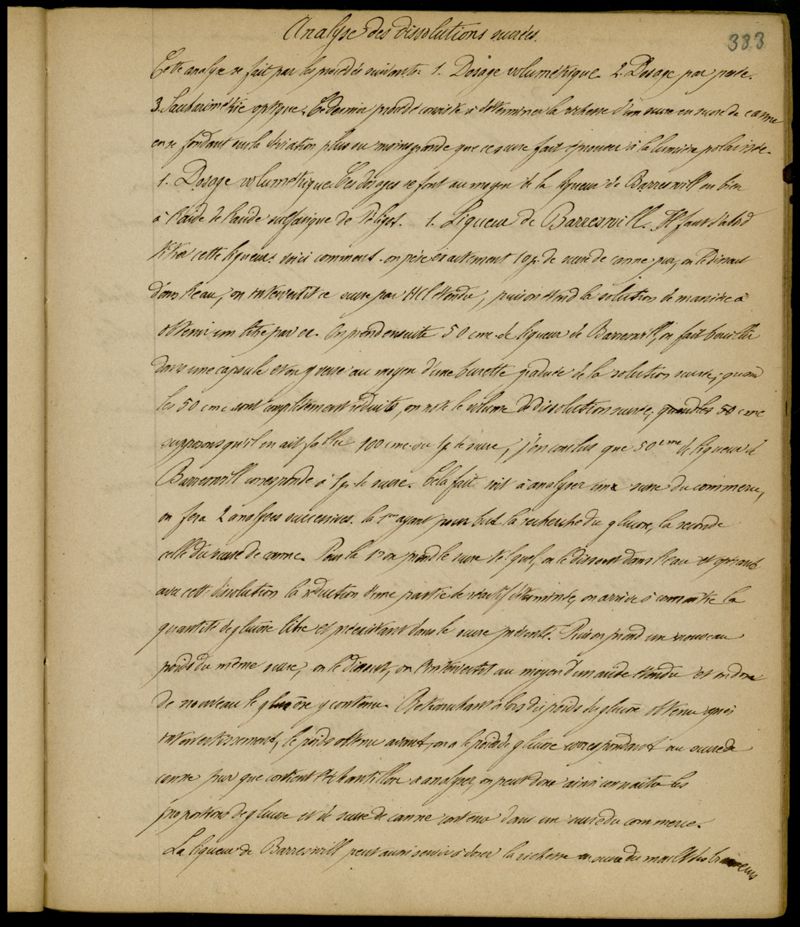 Analyse des dissolutions sucrées.
383
Cette analyse se fait par les procédés suivants 1. Dosage volumétrique 2. Dosage par perte.
3. Saccharimétrie optique. Ce dernier procédé consiste à déterminer la richesse d'un sucre en sucre de canne
en se fondant sur la déviation plus ou moins grande que ce sucre fait éprouver à la lumière polarisée.
1. Dosage volumétrique. Ces dosages se font au moyen de la liqueur de Barreswill ou bien
à l'aide de l'acide sulfurique de Péligot. 1. Liqueur de Barreswill. Il faut d'abord
titrer cette liqueur. Voici comment. on pèse exactement 10 gr. de sucre de canne pur, on le dissout
dans l'eau, on intervertit ce sucre par HCl étendu, puis on étend la solution de manière à
obtenir un litre par ex. On prend ensuite 50 cmc de liqueur de Barreswill, on fait bouillir
dans une capsule et on y verse au moyen d'une burette graduée de la solution sucrée; quand
les 50 cmc sont complètement réduits, on note le volume de dissolution sucrée, quand les 50 cmc
supposons qu'il en ait fallu 100 cmc ou 1 gr de sucre, j'en conclus que 50 cmc de liqueur de
Barreswill correspond à 1 gr. de sucre. Cela fait soit à analyser un sucre du commerce,
on fera 2 analyses successives. la 1re ayant pour but la recherche du glucose, la seconde
celle du sucre de canne. Pour la 1re on prend le sucre tel quel, on le dissout dans l'eau et opérant
avec cette dissolution la réduction d'une partie de réactif déterminée, on arrive à connaître la
quantité de glucose libre et préexistant dans le sucre présenté. Puis on prend un nouveau
poids du même sucre, on le dissout, on l'intervertit au moyen d'un acide étendu et on dose
de nouveau le glucose y contenu. Retranchant alors du poids de glucose obtenu après
intervertissement, le poids obtenu avant, on a le poids de glucose correspondant au sucre de
canne pur que contient l'échantillon à analyser, on peut donc ainsi connaître les
proportions de glucose et de sucre de canne contenu dans un sucre du commerce.
La liqueur de Barreswill peut aussi servir à doser la richesse en sucre du